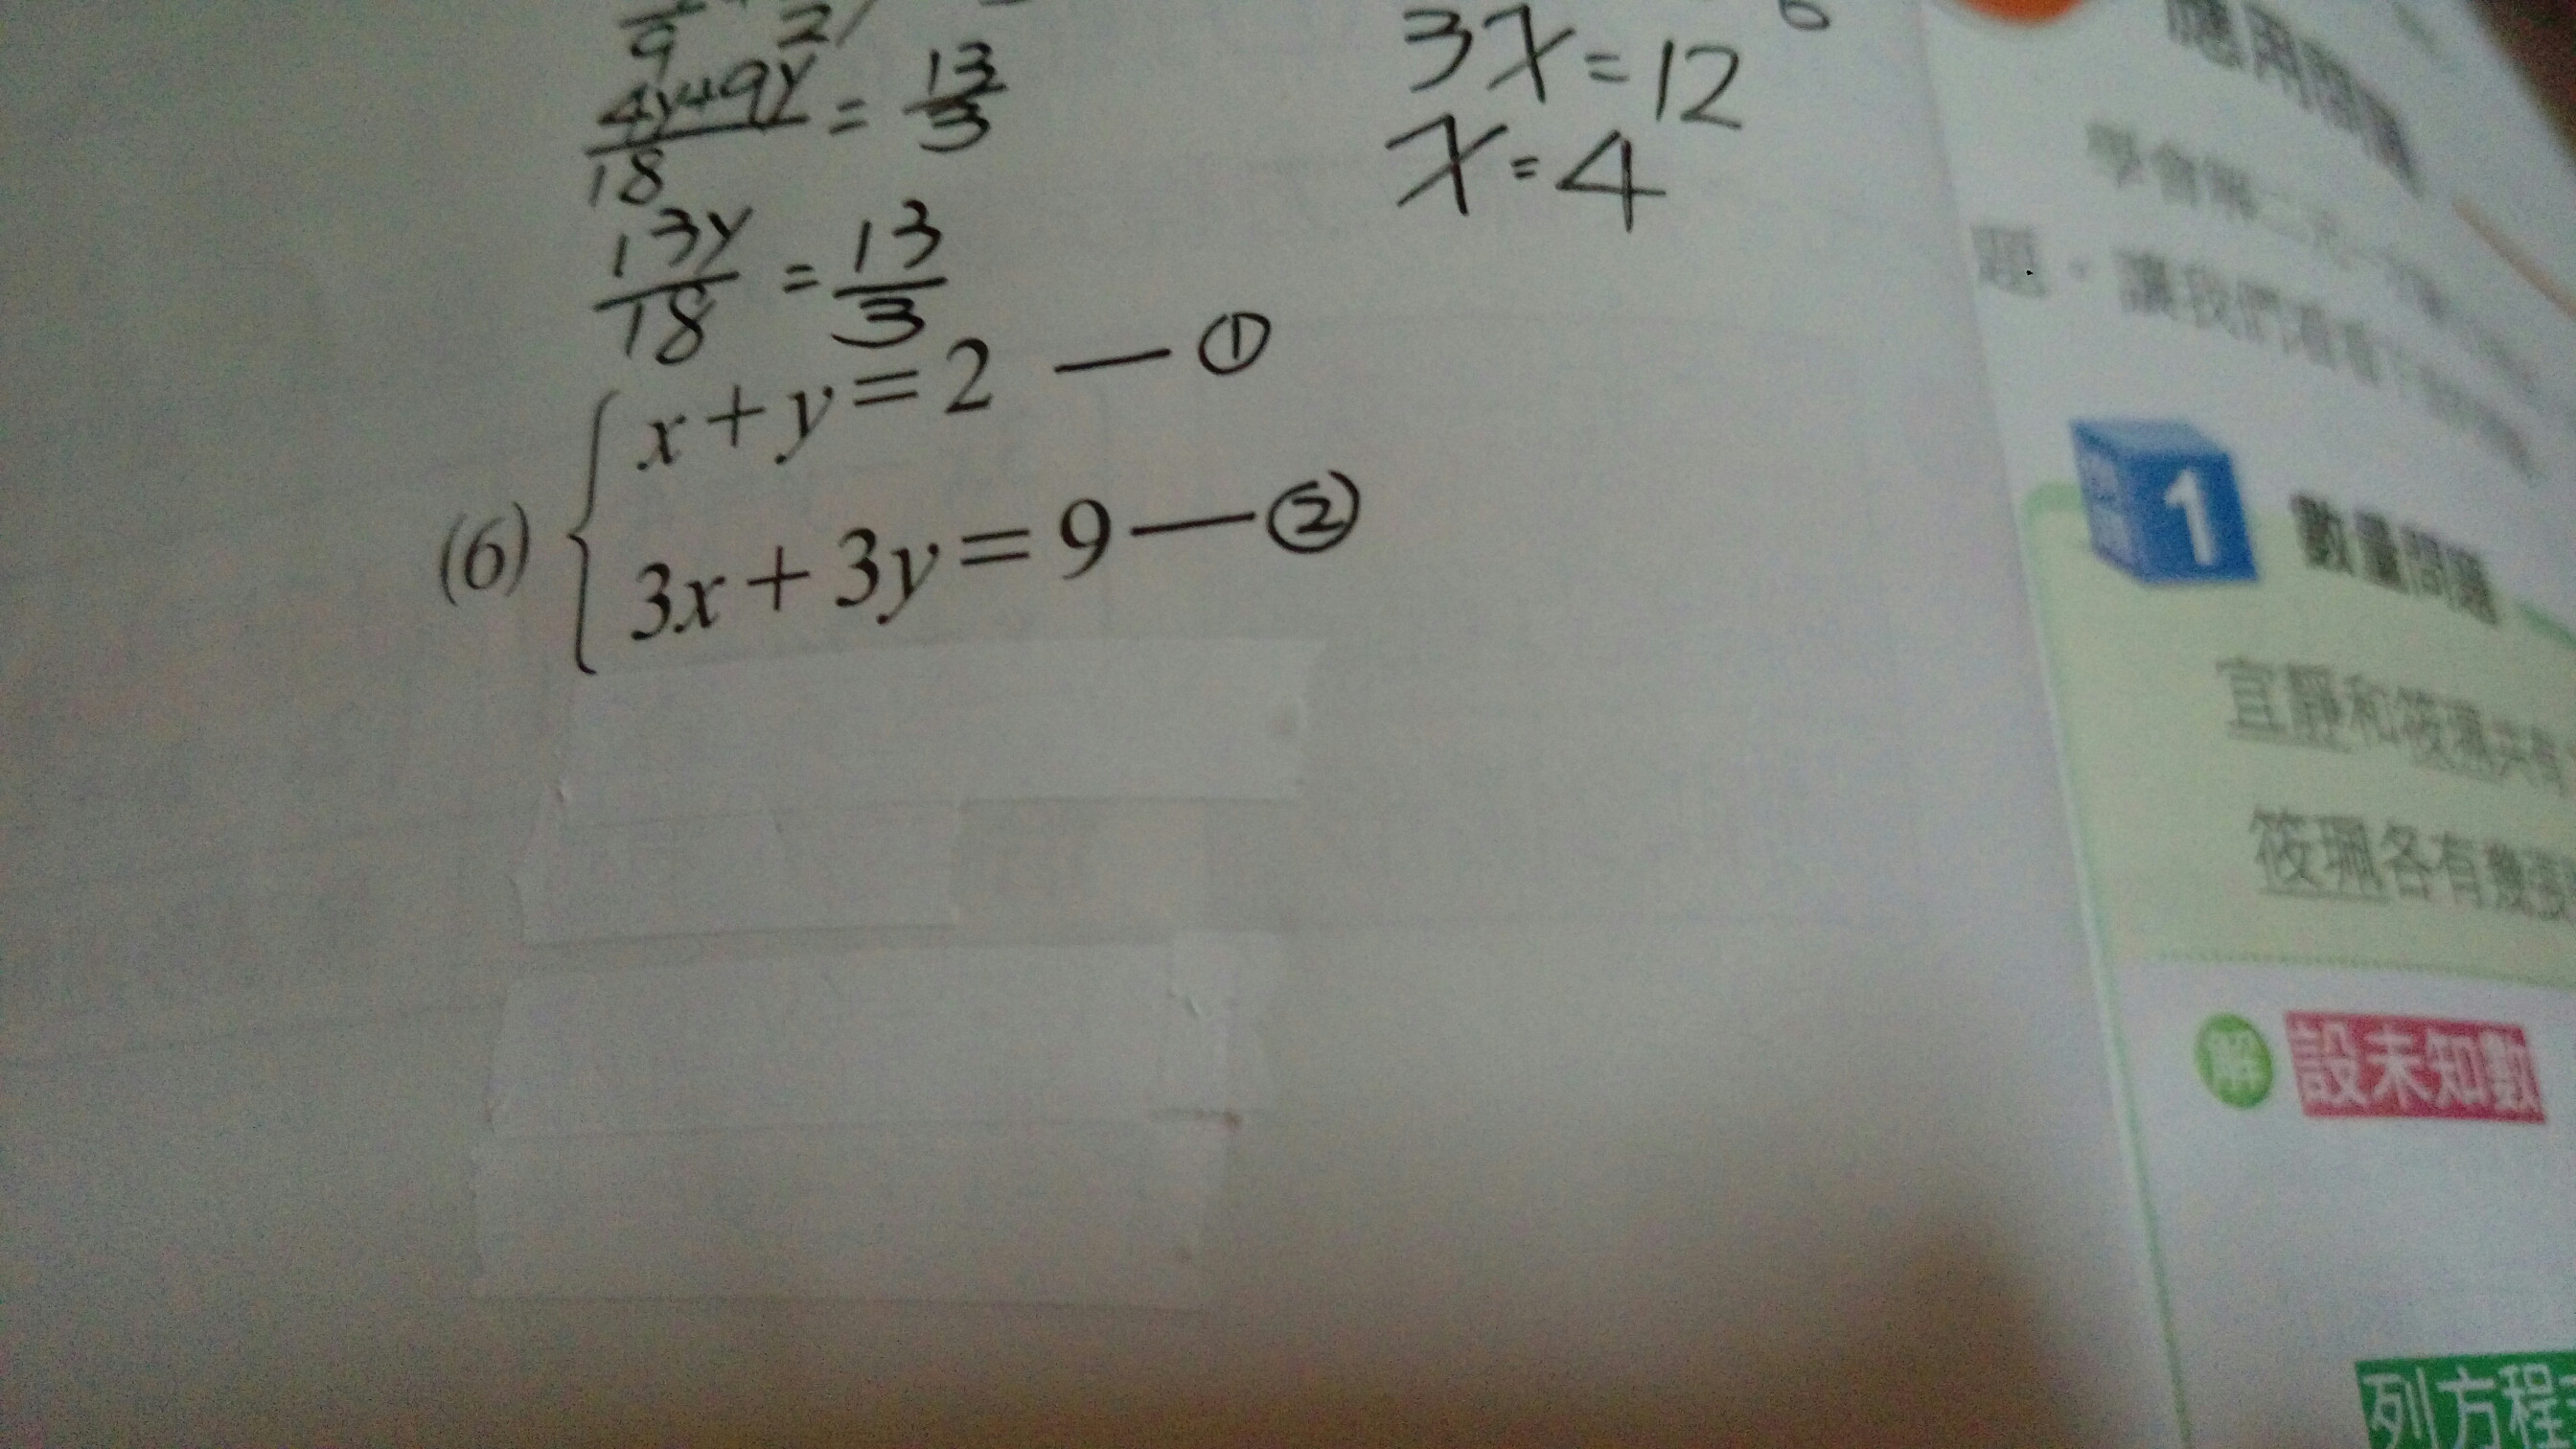 9 2
4y+9y/18 = 13/3
13y/18 = 13/3
3x=12
x=4
(6) { x+y=2 — ①
3x+3y=9 — ②
應用問題
學會解二元一次
題,讓我們看看
1 數量問題
宜靜和筱珮共有
筱珮各有幾張
解 設未知數
列方程